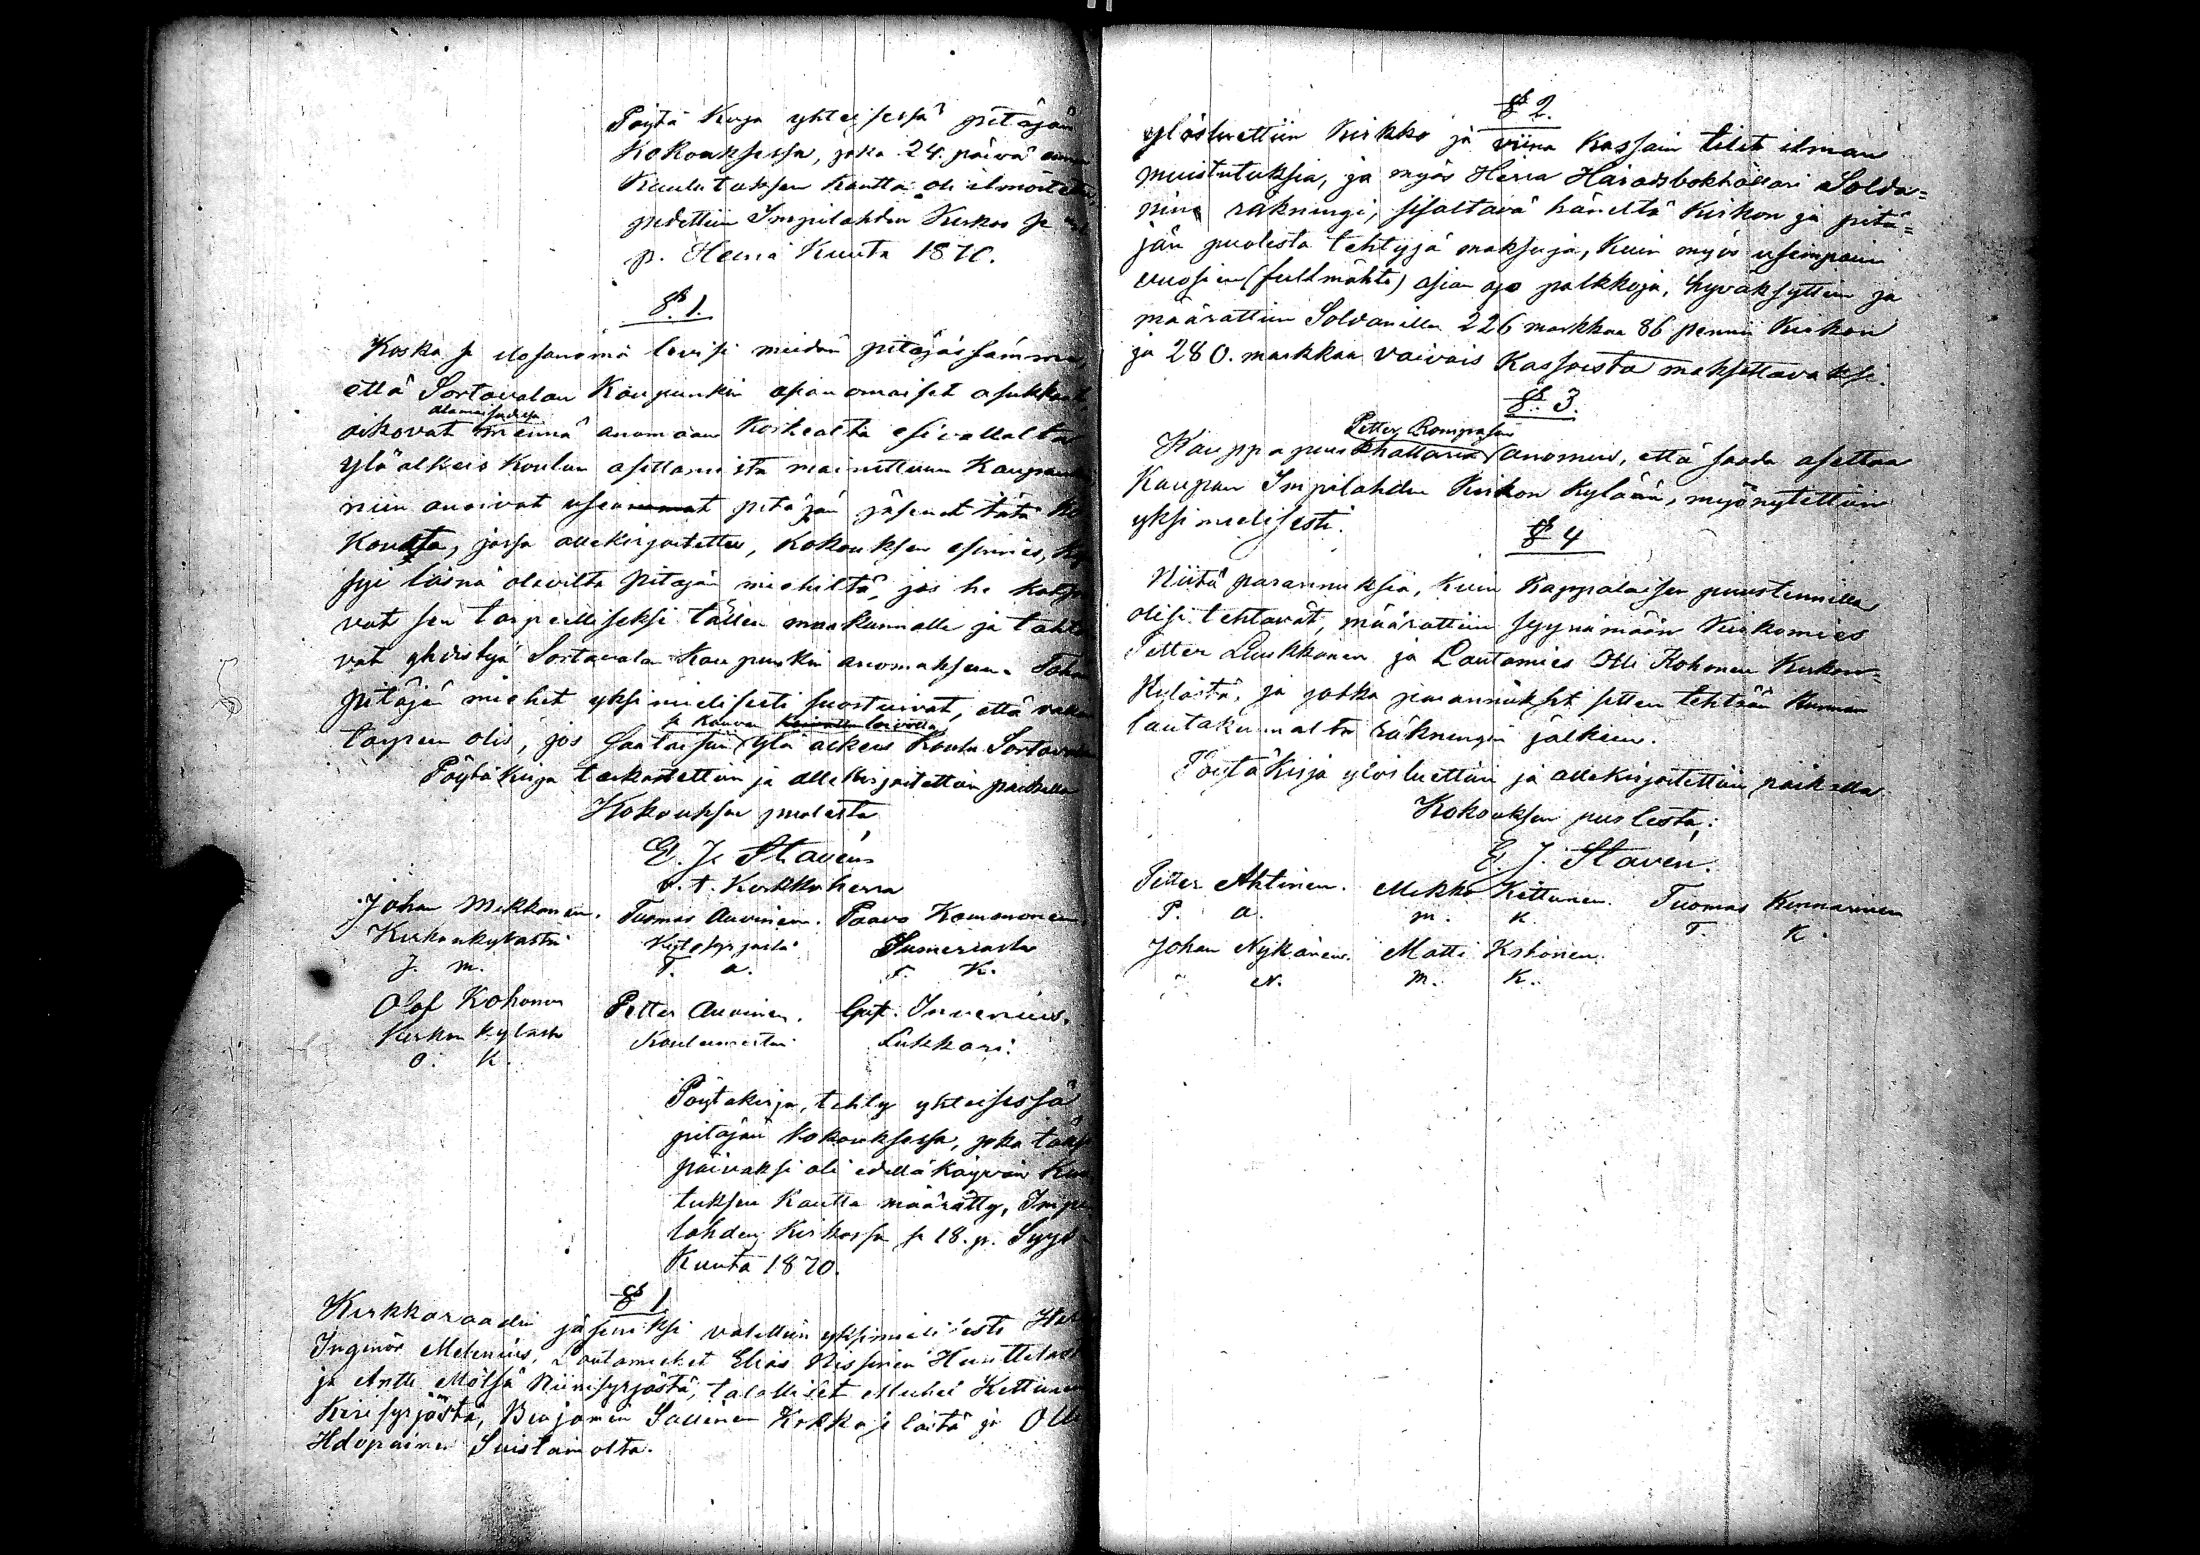 Pöytä Kirja yhteisessä pitäjän
Kokouksessa, joka 24. päivä ennen
Kuulutuksen kautta oli ilmoitettu,
pidettiin Impilahden Kirkos se
p. Heinä Kuuta 1870.
§. 1.
Koska se ilosanoma levisi meidän pitäjässämme,
että Sortavalan Kaupunkin asianomaiset asukkaat
alamaisudesa
aikovat mennä anomaan Korkealta esivallalta
ylä alkeis koulun asettamista mainittuun Kaupunkin
niin anoivat useammat pitäjän jäsenet tätä Ko
kousta, jossa allekirjoitettu, kokouksen esimies, ky
syi läsnä olevilta pitäjän miehiltä, jos he katso
vat sen tarpeelliseksi tällen maakunnalle ja tahto
vat yhdistyä Sortavala Kaupunkin anomukseen. Tähän
pitäjän miehet yksimielisesti suostuivat, että
se kauvan kaivattu toivottu
tarpeen olis, jos saataisiin ylä alkeis koulu Sortavalan
Pöytä Kirja tarkastettiin ja allekirjoitettiin paikalla
Kokouksen puolesta
E. J. Stavén
v. t. Kirkkoherra
Johan Mikkonen. Tuomas Auvinen. Paavo Kommonen.
Kirkonkylästä Kitosyrjästä Sumeriasta
J. M. T. A. P. K.
Olof Kohonen Petter Auvinen. Gust. Invenius.
Kirkon kylästä Koulumestari Lukkari.
O. K.
Pöytäkirja, tehty yhteisessä
pitäjän kokouksessa, joka täksi
päiväksi oli edellä käyvän Kuu
tuksen kautta määrätty, Impi
lahden Kirkossa se 18. p. Syys
Kuuta 1870.
§ 1
Kirkkoraadin jäseniksi valittiin yksimielisesti
Inginör Melenius, Lautamiehet Elias Nissinen Hunttilasta
ja Antti Mötsä Niinisyrjästä, talolliset Mikki Kettunen
Kerisyrjästä, Benjamin Sallinen Kokkaselästä ja Olli
Hdopainen Suistamolta.
§ 2.
ylösluettiin Kirkko ja viina Kassain tilit ilman
muistutuksia, ja myös Herra Häradsbokhållari Solda=
nine räkningi, sisältävä häneltä Kirkon ja pitä=
jän puolesta tehtyjä maksuja, kuin myös usempain
vuosien (fullmahti) asian ajo palkkoja, hyväksyttiin ja
määrättiin Soldanille 226 markkaa 86 penniä Kirkon
ja 280. markkaa vaivais Kassoista maksettavaksi.
§. 3.
Petter Rompasen
Kauppapuukhållarin anomus, että saada asettaa
Kaupan Impilahden Kirkon Kylään, myönytettiin
yksimielisesti.
§ 4
Niitä parannuksia, kuin Kappalaisen puustennilla
olisi tehtävät, määrättiin syynämään Kirkomies
Petter Luukkonen ja Lautamies Olli Kohonen Kirkon=
Kylästä, ja jotka parannukset sitten tehtään Kunnan
lautakunnalta räkningin jälkeen.
Pöytäkirja ylösluettiin ja allekirjoitettiin paikalla
Kokouksen puolesta:
E. J. Stavén.
Petter Ahtinen. Mikko Kettunen. Tuomas Kinnarinen
P. A. M. K. T. K.
Johan Nykänen. Matti Ikonen.
N. M. K.